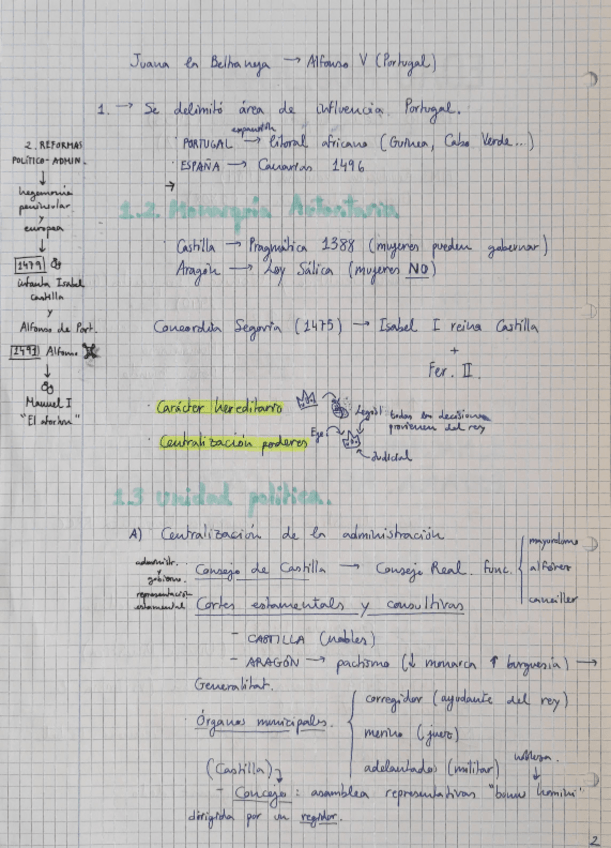 Juana la Beltraneja → Alfonso V (Portugal)
1. → Se delimitó área de influencia Portugal.
expansión
· PORTUGAL → litoral africano (Guinea, Cabo Verde...)
· ESPAÑA → Canarias 1496
→
2. REFORMAS
POLÍTICO-ADMIN.
↓
hegemonía
peninsular
y
europea
↓
1479
infanta Isabel
castilla
y
Alfonso de Port.
Alfonso
↓
Manuel I
"El afortun."
1.2. Monarquía Autoritaria
· Castilla → Pragmática 1388 (mujeres pueden gobernar)
· Aragón → Ley Sálica (mujeres NO)
Concordia Segovia (1475) → Isabel I reina Castilla
+
Fer. II.
· Carácter hereditario
· Centralización poderes
Legisl.
todas las decisiones
provienen del rey
Ejec.
Judicial
1.3 Unidad política.
A) Centralización de la administración
administr.
y
gobierno.
Consejo de Castilla → Consejo Real. func.
mayordomo
alférez
canciller
representación
estamental
Cortes estamentals y consultivas
- CASTILLA (nobles)
- ARAGÓN → pactismo (↓ monarca ↑ burguesía) →
Generalitat.
Órganos municipales.
corregidor (ayudante del rey)
merino (juez)
adelantado (militar)
(Castilla)
nobleza.
↓
- Concejo: asamblea representativas "bonus homini"
dirigida por un regidor.
2